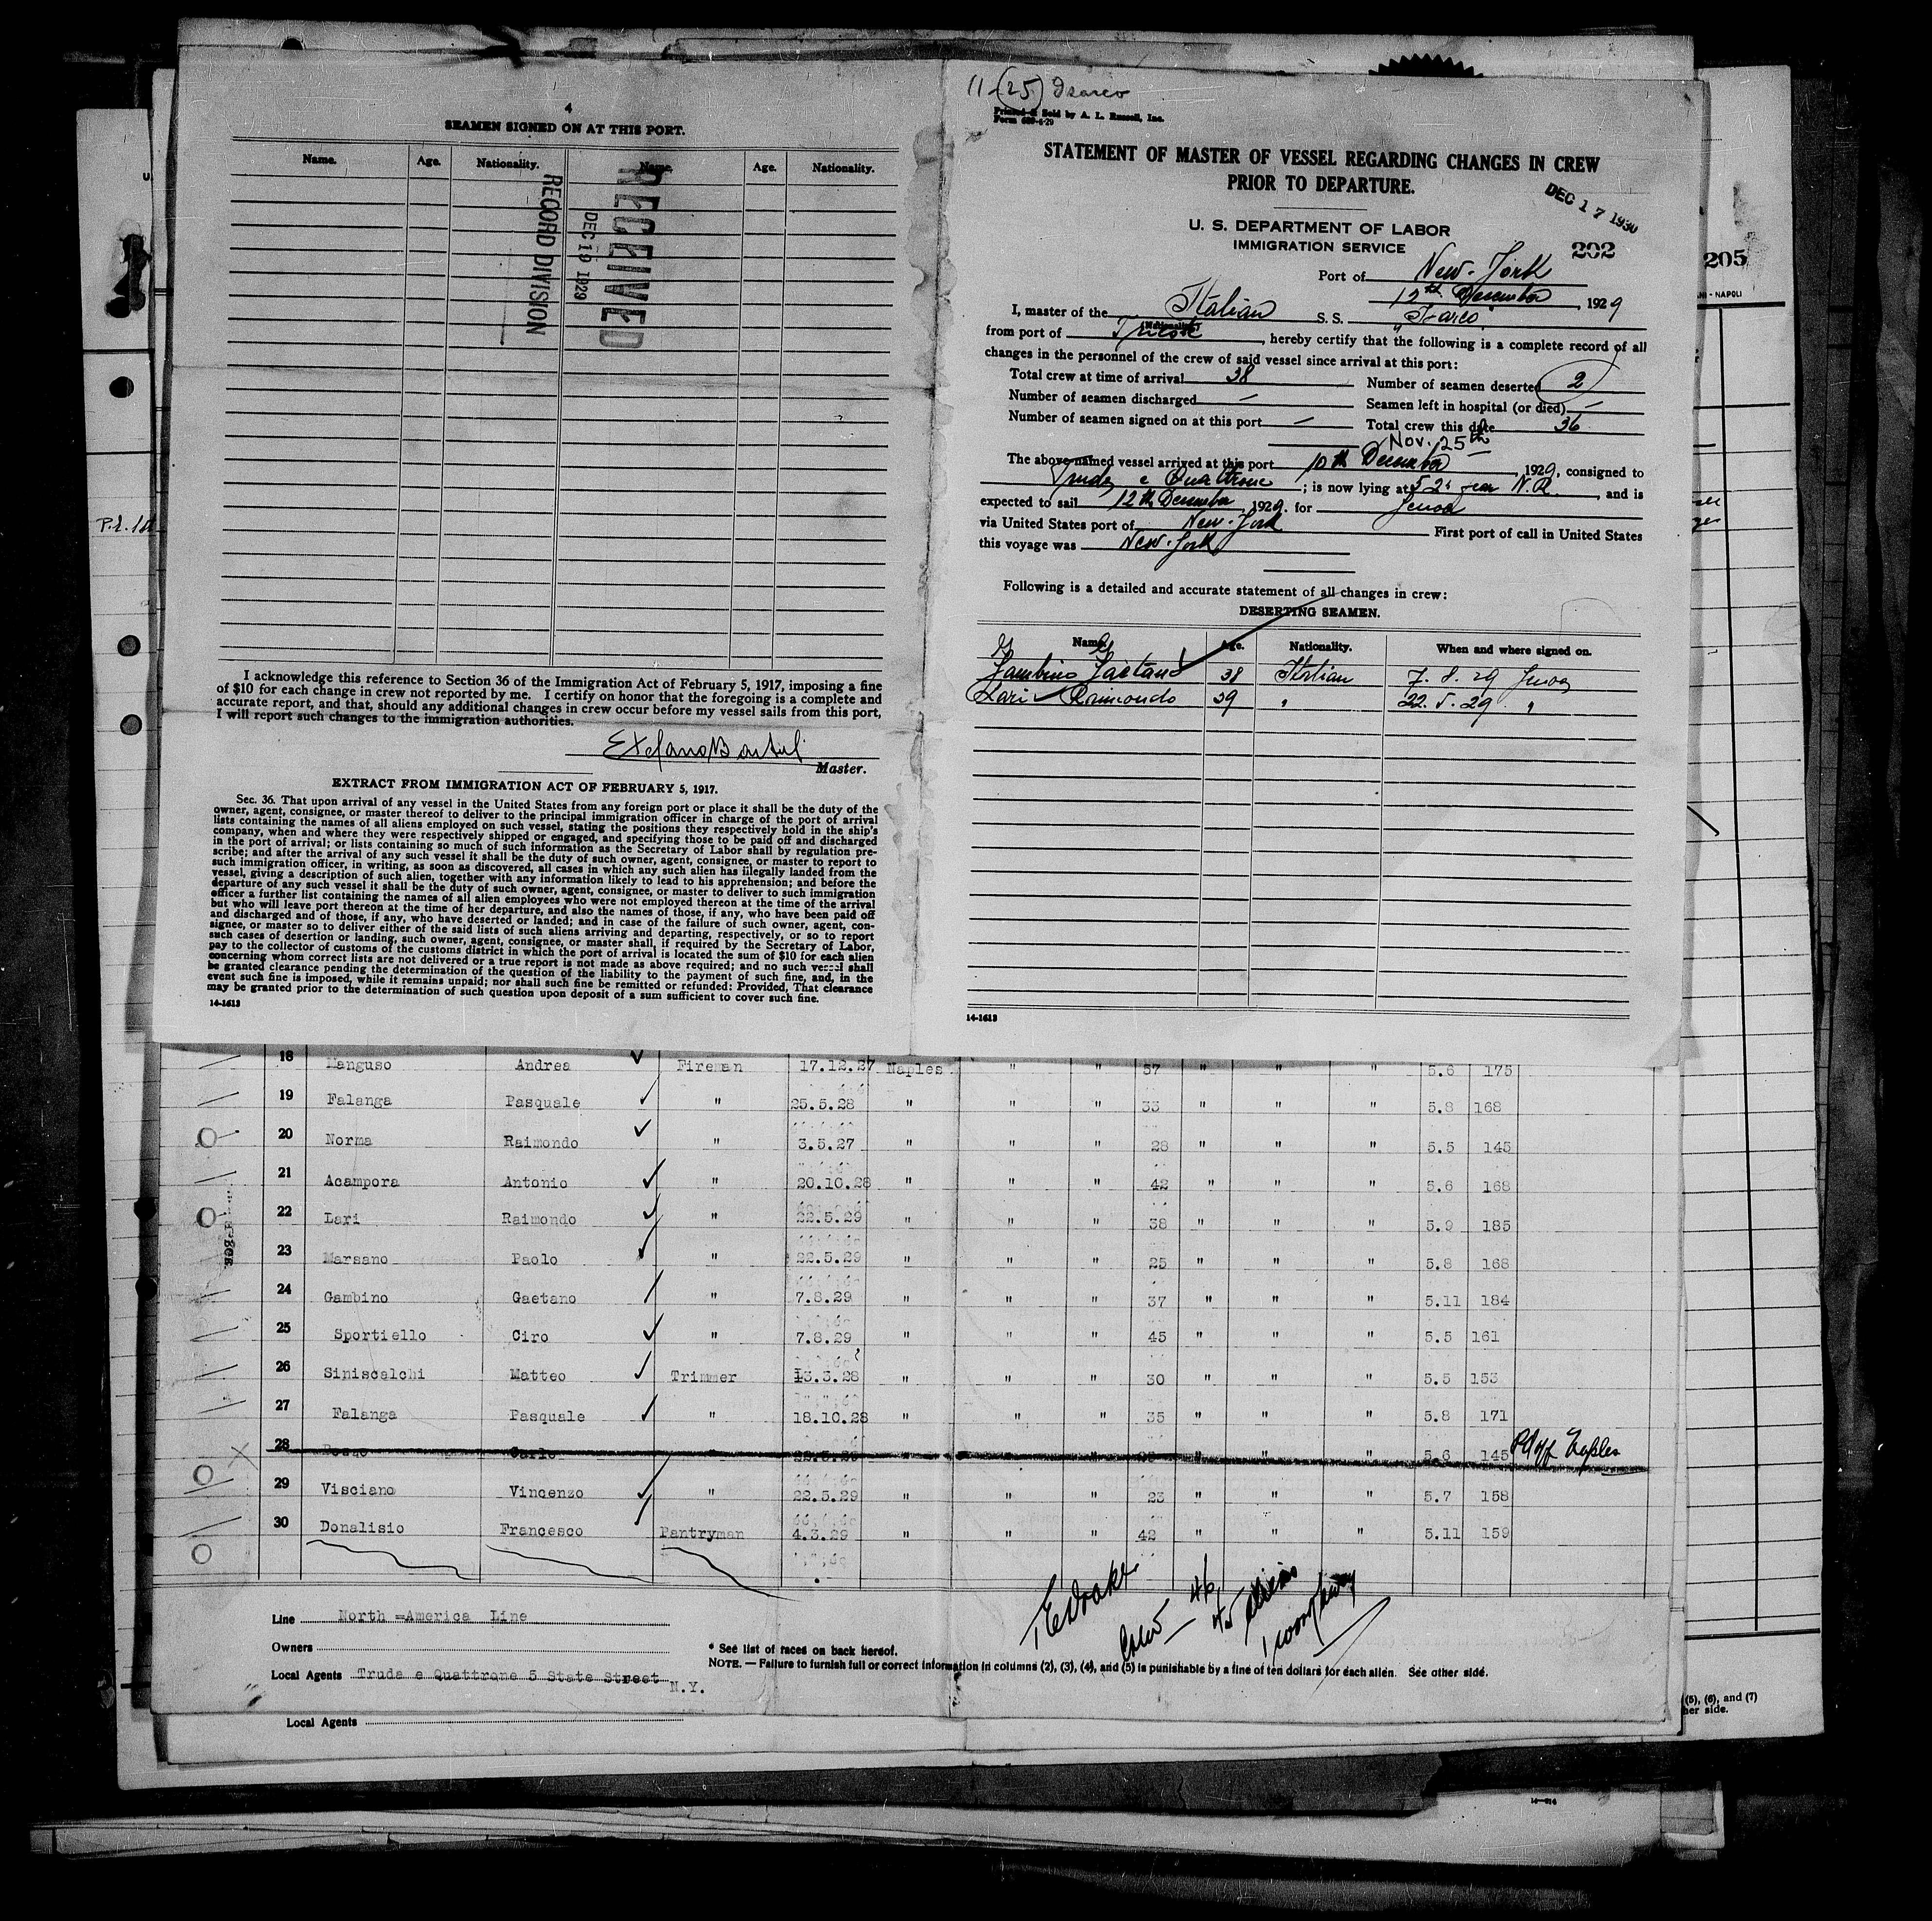 4
SEAMEN SIGNED ON AT THIS PORT.
Name. Age. Nationality. Name. Age. Nationality.
RECEIVED
DEC 19 1929
RECORD DIVISION
I acknowledge this reference to Section 36 of the Immigration Act of February 5, 1917, imposing a fine
of $10 for each change in crew not reported by me. I certify on honor that the foregoing is a complete and
accurate report, and that, should any additional changes in crew occur before my vessel sails from this port,
I will report such changes to the immigration authorities.
Master.
EXTRACT FROM IMMIGRATION ACT OF FEBRUARY 5, 1917.
Sec. 36. That upon arrival of any vessel in the United States from any foreign port or place it shall be the duty of the
owner, agent, consignee, or master thereof to deliver to the principal immigration officer in charge of the port of arrival
lists containing the names of all aliens employed on such vessel, stating the positions they respectively hold in the ship's
company, when and where they were respectively shipped or engaged, and specifying those to be paid off and discharged
in the port of arrival; or lists containing so much of such information as the Secretary of Labor shall by regulation pre-
scribe; and after the arrival of any such vessel it shall be the duty of such owner, agent, consignee, or master to report to
such immigration officer, in writing, as soon as discovered, all cases in which any such alien has illegally landed from the
vessel, giving a description of such alien, together with any information likely to lead to his apprehension; and before the
departure of any such vessel it shall be the duty of such owner, agent, consignee, or master to deliver to such immigration
officer a further list containing the names of all alien employees who were not employed thereon at the time of the arrival
but who will leave port thereon at the time of her departure, and also the names of those, if any, who have been paid off
and discharged and of those, if any, who have deserted or landed; and in case of the failure of such owner, agent, con-
signee, or master so to deliver either of the said lists of such aliens arriving and departing, respectively, or so to report
such cases of desertion or landing, such owner, agent, consignee, or master shall, if required by the Secretary of Labor,
pay to the collector of customs of the customs district in which the port of arrival is located the sum of $10 for each alien
concerning whom correct lists are not delivered or a true report is not made as above required; and no such vessel shall
be granted clearance pending the determination of the question of the liability to the payment of such fine, and, in the
event such fine is imposed, while it remains unpaid; nor shall such fine be remitted or refunded: Provided, That clearance
may be granted prior to the determination of such question upon deposit of a sum sufficient to cover such fine.
14-1613
11-25 Isarco
Printed & Sold by A. L. Russell, Inc.
Form 689-6-29
STATEMENT OF MASTER OF VESSEL REGARDING CHANGES IN CREW
PRIOR TO DEPARTURE.
DEC 17 1930
U. S. DEPARTMENT OF LABOR
IMMIGRATION SERVICE
202
Port of New-York
12th December, 1929
I, master of the Italian S. S. "Isarco"
from port of Trieste, hereby certify that the following is a complete record of all
changes in the personnel of the crew of said vessel since arrival at this port:
Total crew at time of arrival 38 Number of seamen deserted 2
Number of seamen discharged — Seamen left in hospital (or died) —
Number of seamen signed on at this port — Total crew this date 36
Nov. 25th
The above-named vessel arrived at this port 10th December, 1929, consigned to
Truda e Quattrone; is now lying at and is
expected to sail 12th December, 1929. for Genoa
via United States port of New-York First port of call in United States
this voyage was New-York
Following is a detailed and accurate statement of all changes in crew:
DESERTING SEAMEN.
Name. Age. Nationality. When and where signed on.
Gambino Gaetano 38 Italian 7.8.29 Genoa
Lari Raimondo 39 " 22.5.29 "
14-1613
205
ANI - NAPOLI
18 Manguso Andrea Fireman 17.12.27 Naples " " 37 " " " 5.6 175
19 Falanga Pasquale " 25.5.28 " " " 33 " " " 5.8 168
20 Norma Raimondo " 3.5.27 " " " 28 " " " 5.5 145
21 Acampora Antonio " 20.10.28 " " " 42 " " " 5.6 168
22 Lari Raimondo " 22.5.29 " " " 38 " " " 5.9 185
23 Marsano Paolo " 22.5.29 " " " 25 " " " 5.8 168
24 Gambino Gaetano " 7.8.29 " " " 37 " " " 5.11 184
25 Sportiello Ciro " 7.8.29 " " " 45 " " " 5.5 161
26 Siniscalchi Matteo Trimmer 13.3.28 " " " 30 " " " 5.5 153
27 Falanga Pasquale " 18.10.28 " " " 35 " " " 5.8 171
28 Carlo " 22.5.29 " " " " " " 5.6 145 Pd off Naples
29 Visciano Vincenzo " 22.5.29 " " " 23 " " " 5.7 158
30 Donalisio Francesco Pantryman 4.3.29 " " " 42 " " " 5.11 159
Line North =America Line
Owners
Local Agents Truda e Quattrone 5 State Street N.Y.
* See list of races on back hereof.
NOTE. — Failure to furnish full or correct information in columns (2), (3), (4), and (5) is punishable by a fine of ten dollars for each alien. See other side.
Crew — 46
45 aliens
Local Agents
(5), (6), and (7)
her side.